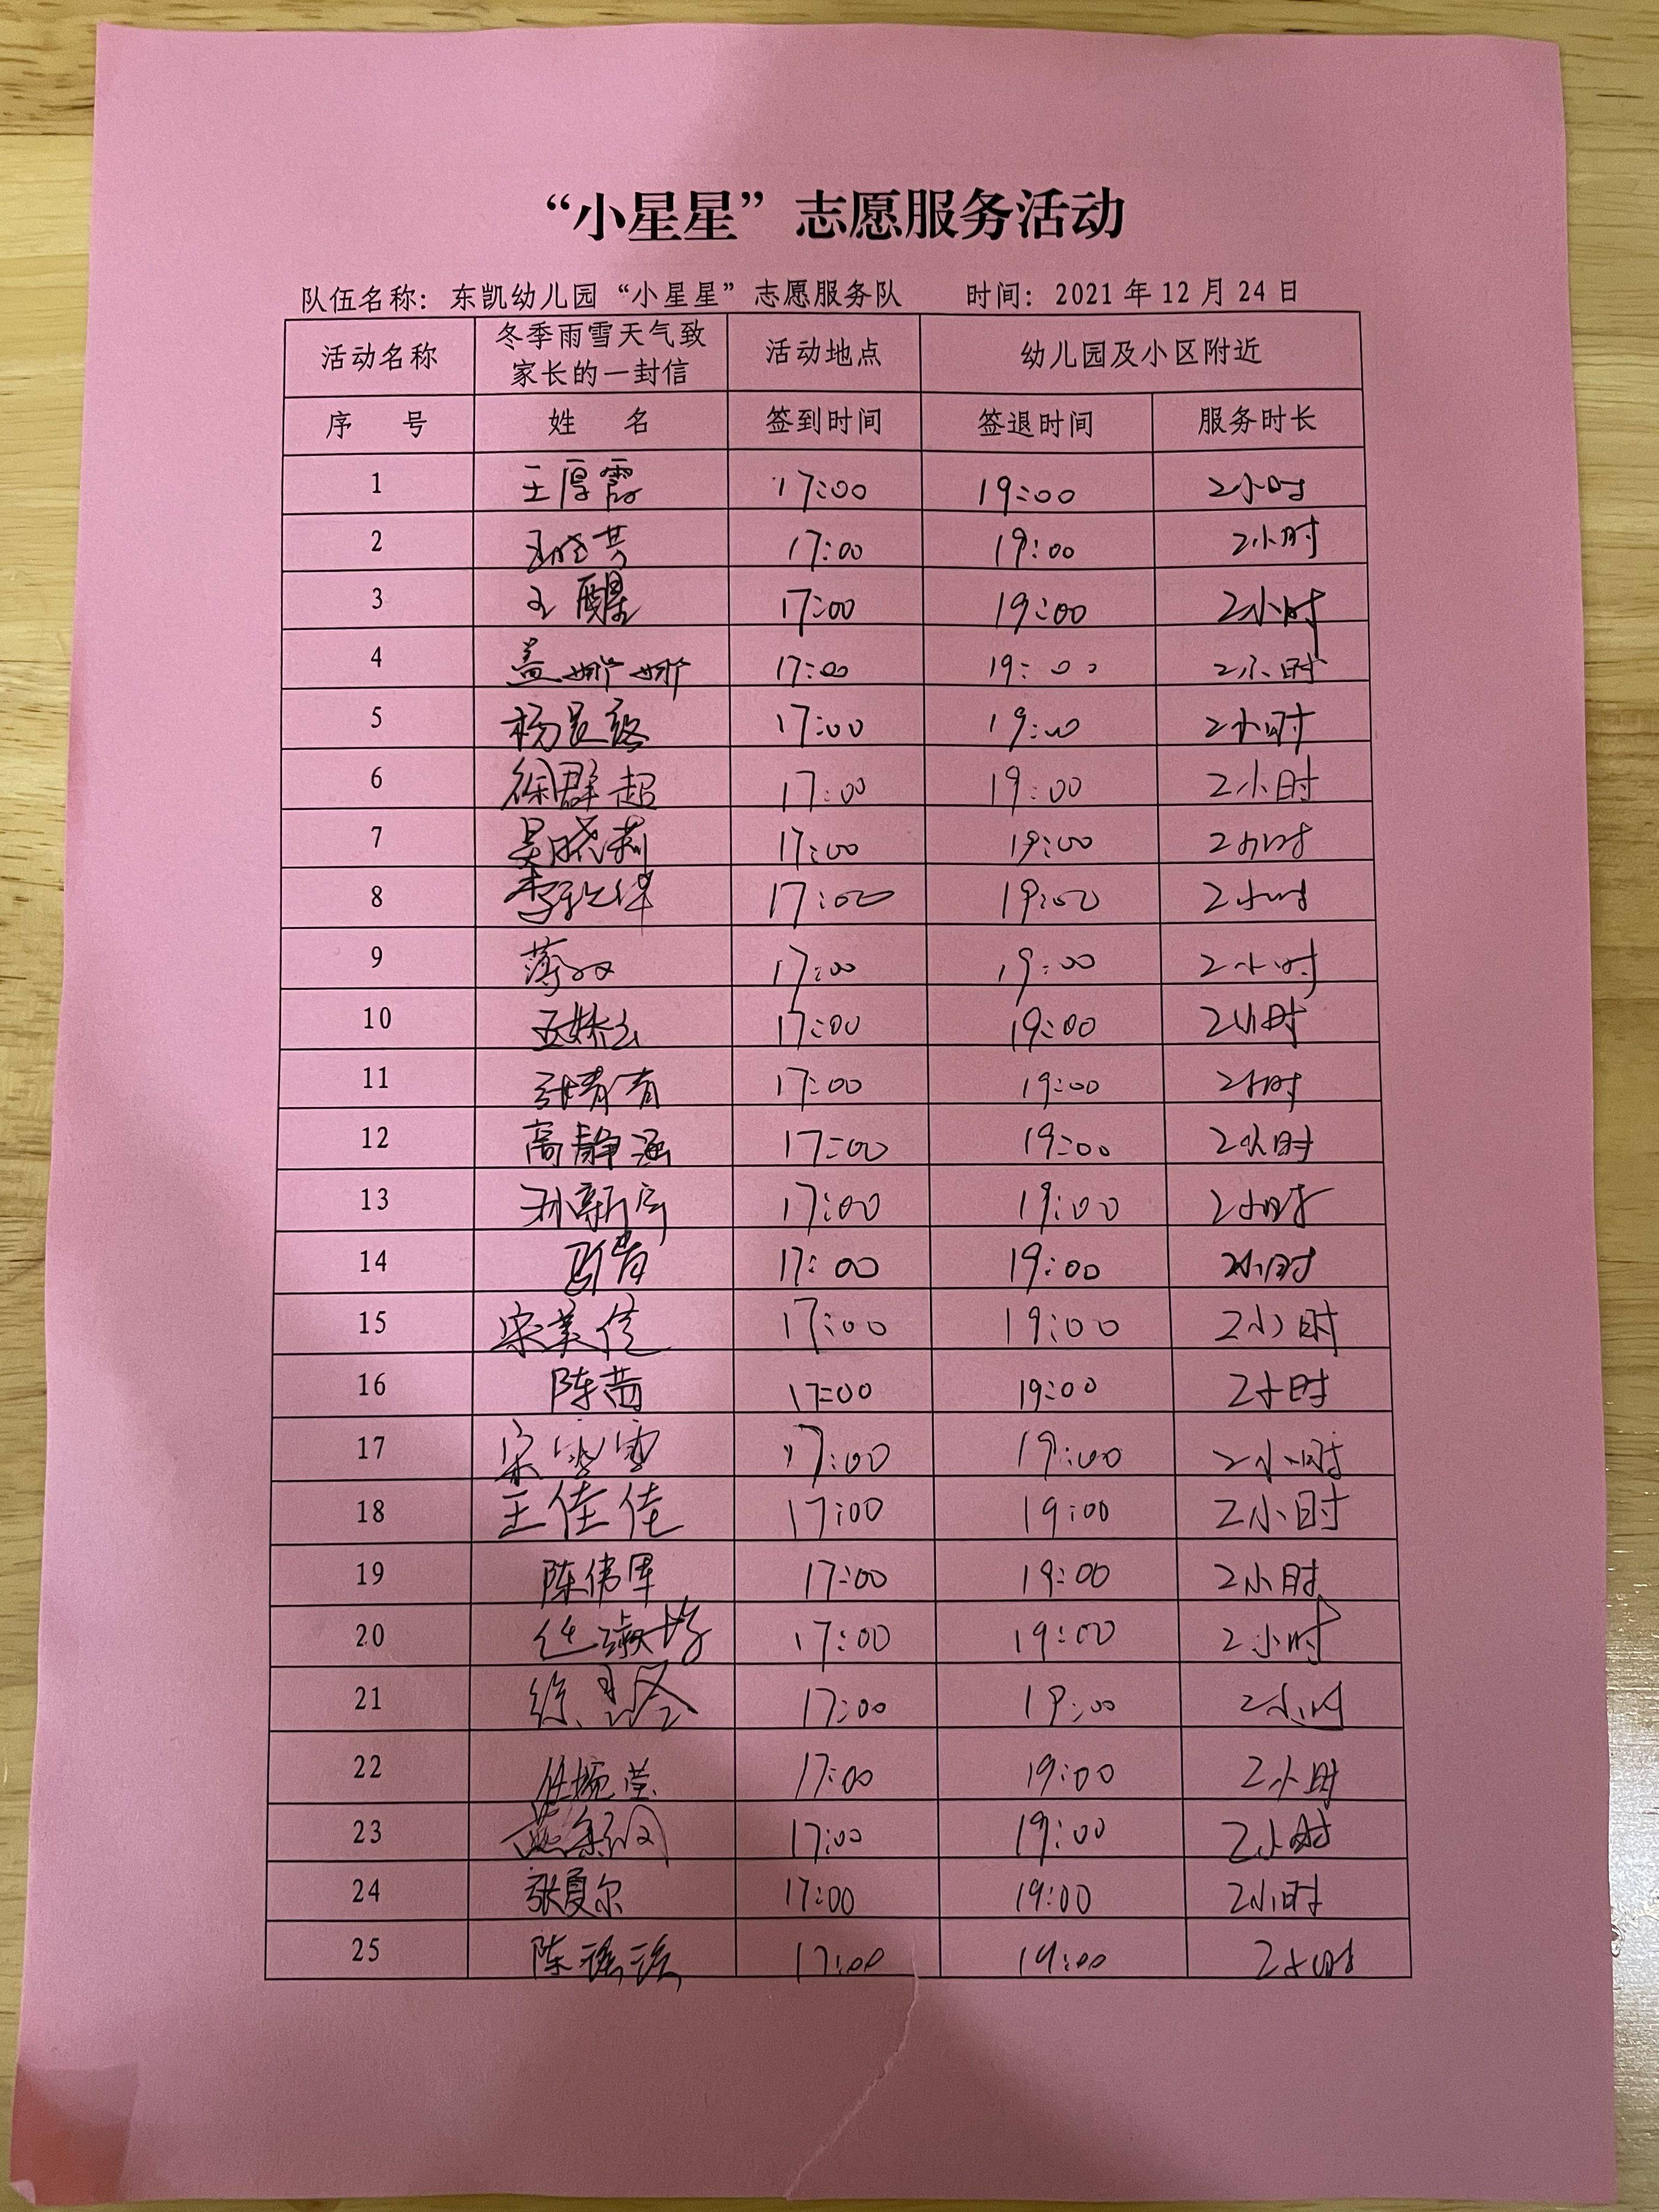 “小星星”志愿服务活动
队伍名称：东凯幼儿园“小星星”志愿服务队 时间：2021年12月24日
活动名称 冬季雨雪天气致家长的一封信 活动地点 幼儿园及小区附近
序 号 姓 名 签到时间 签退时间 服务时长
1 王厚霞 17:00 19:00 2小时
2 17:00 19:00 2小时
3 王醒 17:00 19:00 2小时
4 盖娜娜 17:00 19:00 2小时
5 17:00 19:00 2小时
6 徐群超 17:00 19:00 2小时
7 吴晓莉 17:00 19:00 2小时
8 17:00 19:00 2小时
9 17:00 19:00 2小时
10 17:00 19:00 2小时
11 17:00 19:00 2小时
12 高静涵 17:00 19:00 2小时
13 17:00 19:00 2小时
14 17:00 19:00 2小时
15 宋美佳 17:00 19:00 2小时
16 陈茜 17:00 19:00 2小时
17 17:00 19:00 2小时
18 王佳佳 17:00 19:00 2小时
19 陈伟军 17:00 19:00 2小时
20 17:00 19:00 2小时
21 17:00 19:00 2小时
22 17:00 19:00 2小时
23 17:00 19:00 2小时
24 张夏尔 17:00 19:00 2小时
25 17:00 19:00 2小时